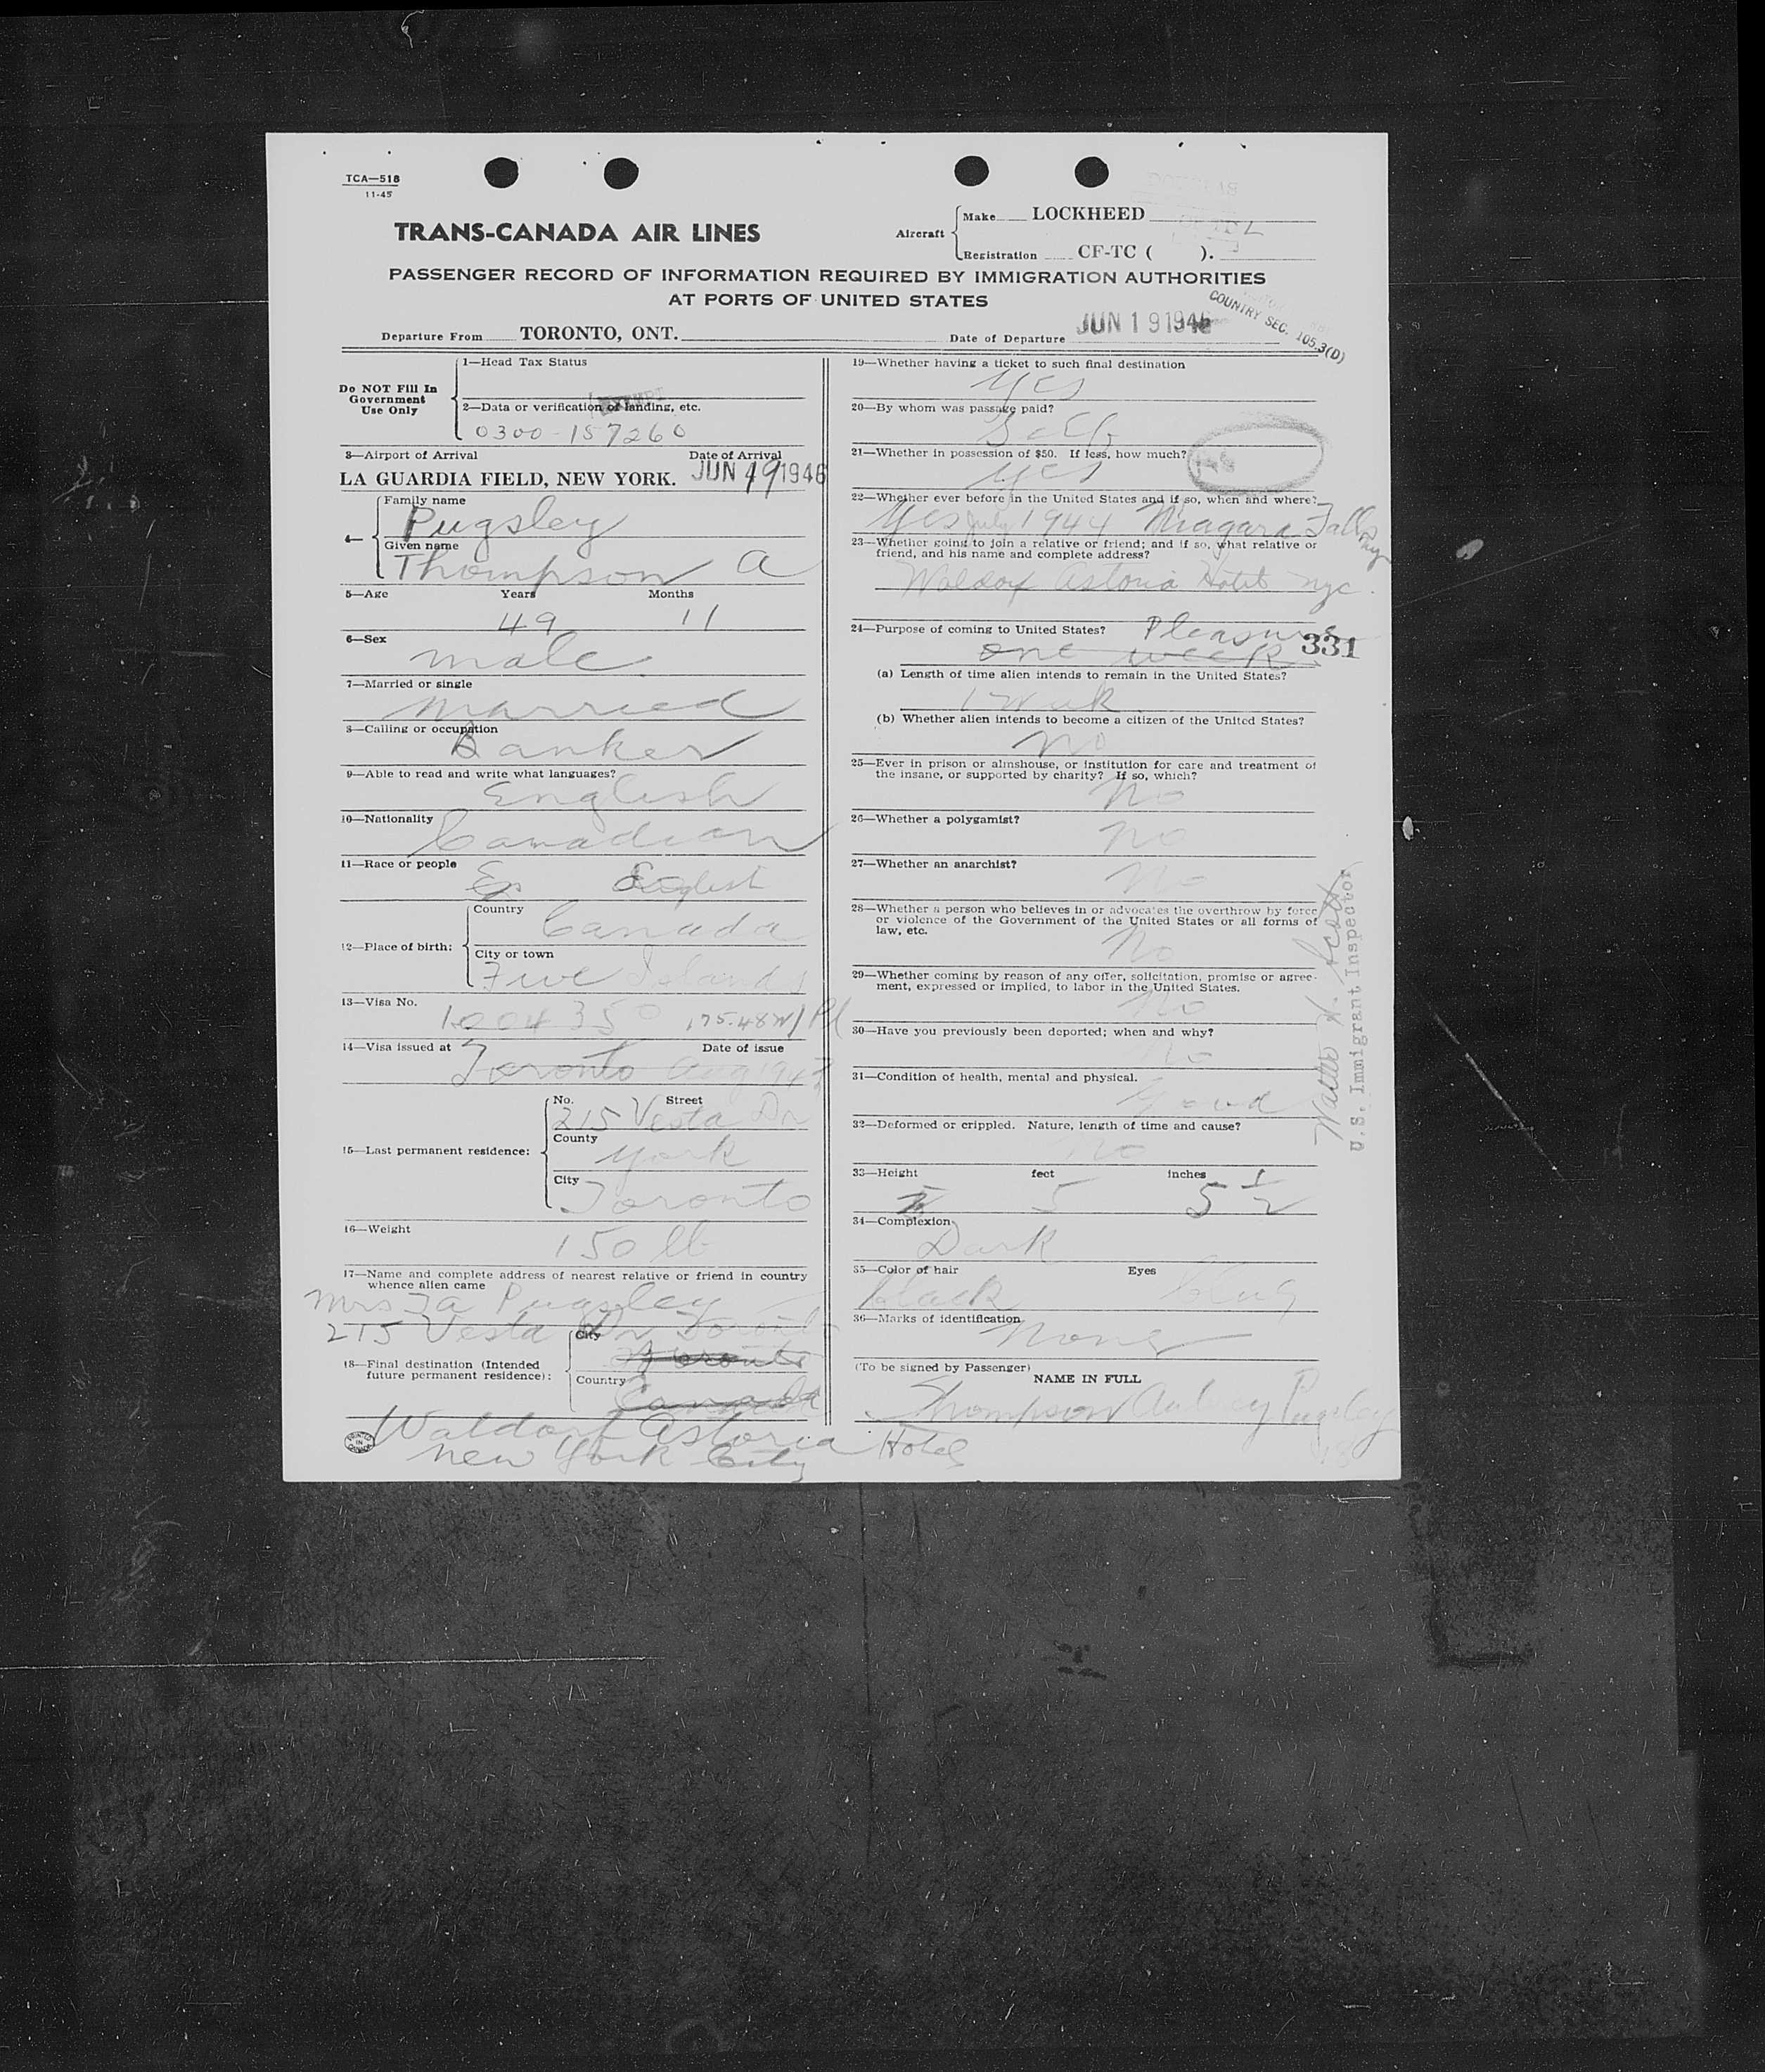 TCA—518
11-45
TRANS-CANADA AIR LINES
Aircraft
Make LOCKHEED
Registration CF-TC ( ).
PASSENGER RECORD OF INFORMATION REQUIRED BY IMMIGRATION AUTHORITIES
AT PORTS OF UNITED STATES
COUNTRY SEC. 105.3(D)
Departure From TORONTO, ONT.
Date of Departure JUN 19 1946
Do NOT Fill In
Government
Use Only
1—Head Tax Status
EXEMPT
2—Data or verification of landing, etc.
0300-157260
3—Airport of Arrival Date of Arrival
LA GUARDIA FIELD, NEW YORK. JUN 19 1946
4—
Family name
Pugsley
Given name
Thompson A
5—Age Years Months
49 11
6—Sex
male
7—Married or single
married
8—Calling or occupation
Banker
9—Able to read and write what languages?
English
10—Nationality
Canadian
11—Race or people
En English
12—Place of birth:
Country
Canada
City or town
Five Islands
13—Visa No.
1004350
14—Visa issued at Date of issue
Toronto Aug 194
15—Last permanent residence:
No. Street
215 Vesta Dr
County
York
City
Toronto
16—Weight
150 lb
17—Name and complete address of nearest relative or friend in country
whence alien came
Mrs TA Pugsley
215 Vesta Dr Toronto
18—Final destination (Intended
future permanent residence):
City
Toronto
Country
Canada
Waldorf Astoria Hotel
New York City
PRINTED IN CANADA
19—Whether having a ticket to such final destination
Yes
20—By whom was passage paid?
Self
21—Whether in possession of $50. If less, how much?
yes
22—Whether ever before in the United States and if so, when and where?
Yes July 1944 Niagara Falls NY
23—Whether going to join a relative or friend; and if so, what relative or
friend, and his name and complete address?
Waldorf Astoria Hotel nyc.
24—Purpose of coming to United States? Pleasure
one week
331
(a) Length of time alien intends to remain in the United States?
1 Week
(b) Whether alien intends to become a citizen of the United States?
No
25—Ever in prison or almshouse, or institution for care and treatment of
the insane, or supported by charity? If so, which?
No
26—Whether a polygamist?
No
27—Whether an anarchist?
No
28—Whether a person who believes in or advocates the overthrow by force
or violence of the Government of the United States or all forms of
law, etc.
No
29—Whether coming by reason of any offer, solicitation, promise or agree-
ment, expressed or implied, to labor in the United States.
No
30—Have you previously been deported; when and why?
No
31—Condition of health, mental and physical.
Good
32—Deformed or crippled. Nature, length of time and cause?
No
33—Height feet inches
5 5 1/2
34—Complexion
Dark
35—Color of hair Eyes
black
36—Marks of identification
None
(To be signed by Passenger)
NAME IN FULL
Thompson Aubrey Pugsley
Walter W.
U.S. Immigrant Inspector